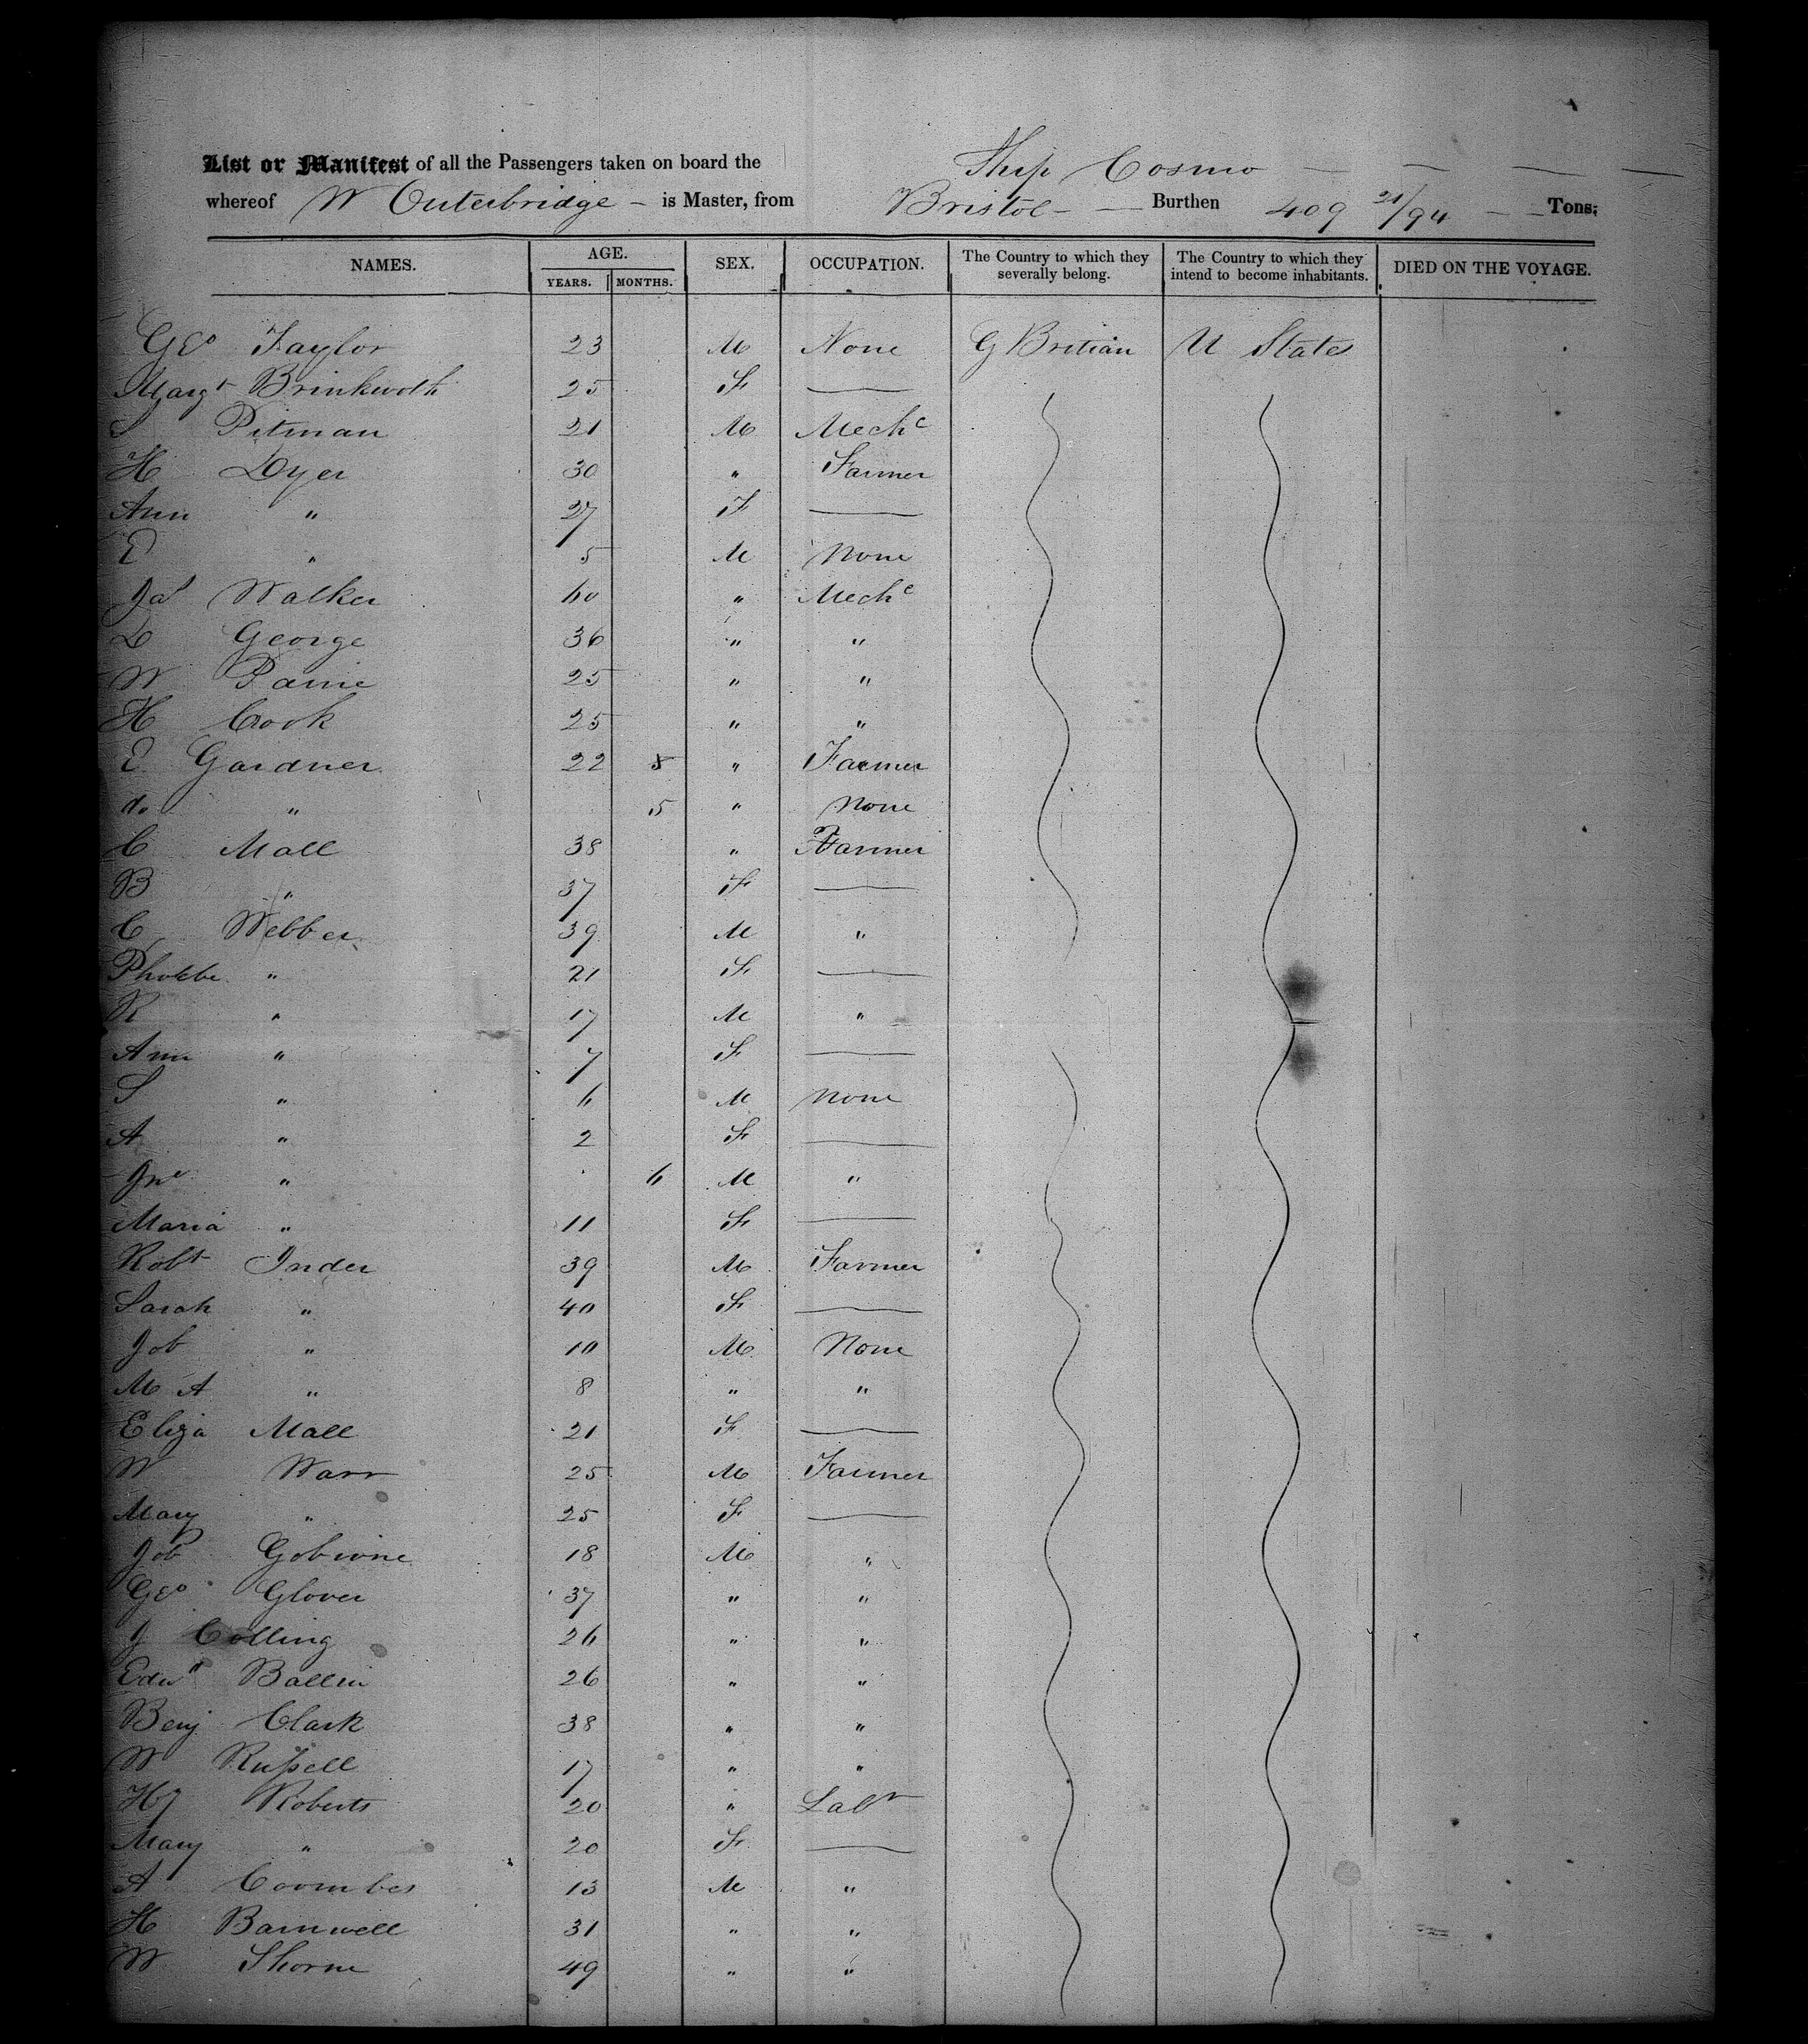 List or Manifest of all the Passengers taken on board the Ship Cosmo
whereof W Outerbridge - is Master, from Bristol - Burthen 409 21/94 Tons;
NAMES. AGE. SEX. OCCUPATION. The Country to which they severally belong. The Country to which they intend to become inhabitants. DIED ON THE VOYAGE.
YEARS. MONTHS.
Geo Taylor 23 M None G Britian U States
Margt Brinkworth 25 F
S Pitman 21 M Mechc
H Dyer 30 " Farmer
Ann " 27 F
E " 5 M None
Jas Walker 60 " Mechc
D George 36 " "
W Paine 25 " "
H Cook 25 " "
E Gardner 22 " Farmer
do " 5 " None
C Mall 38 " Farmer
B " 37 F
C Webber 39 M "
Phoebe " 21 F
R " 17 M "
Ann " 7 F
S " 6 M None
A " 2 F
Jno " 6 M "
Maria " 11 F
Robt Inder 39 M Farmer
Sarah " 40 F
Job " 10 M None
M A " 8 " "
Eliza Mall 21 F
W Warr 25 M Farmer
Mary " 25 F
Job 18 M "
Geo Glover 37 " "
J Colling 26 " "
Edwd Ballin 26 " "
Benj Clark 38 " "
W Russell 17 " "
HJ Roberts 20 " Labr
Mary " 20 F
A Coombes 13 M "
H Barnwell 31 " "
W Thorne 49 " "